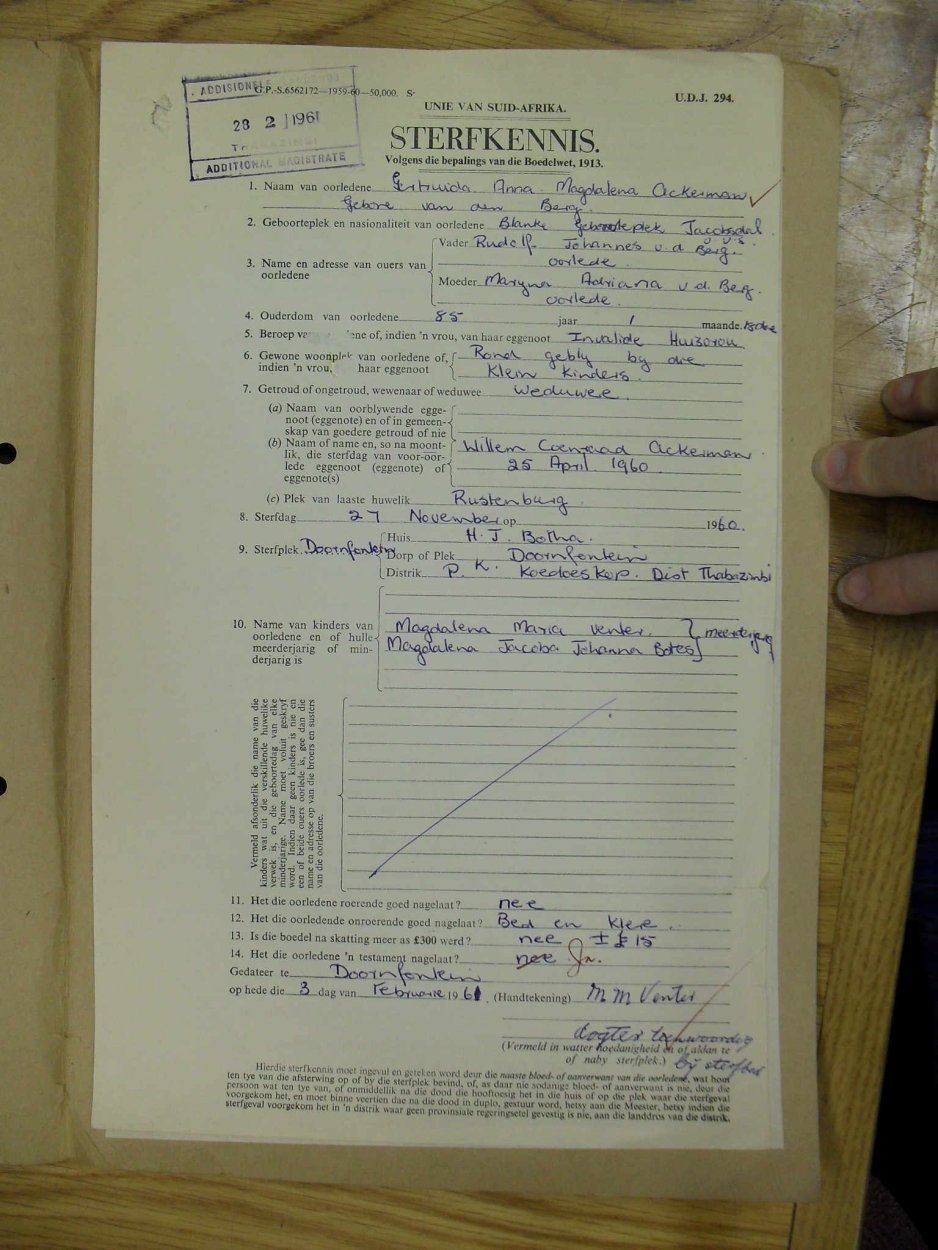 ADDISIONELE
28 2 1961
THABAZIMBI
ADDITIONAL MAGISTRATE
G.P.-S.6562172—1959-60—50,000. S
U.D.J. 294.
UNIE VAN SUID-AFRIKA.
STERFKENNIS.
Volgens die bepalings van die Boedelwet, 1913.
1. Naam van oorledene Gertruida Anna Magdalena Ackerman
Gebore van den Berg.
2. Geboorteplek en nasionaliteit van oorledene Blanke Geboorteplek Jacobsdal
O.V.S.
3. Name en adresse van ouers van oorledene
Vader Rudolf Johannes v.d Berg.
oorlede.
Moeder Maryna Adriana v.d. Berg.
oorlede.
4. Ouderdom van oorledene 85 jaar 1 maande.
5. Beroep va ene of, indien 'n vrou, van haar eggenoot Invalide Huisvrou
6. Gewone woonplek van oorledene of, indien 'n vrou, haar eggenoot
Rond gebly by die
Klein Kinders.
7. Getroud of ongetroud, wewenaar of weduwee Weduwee.
(a) Naam van oorblywende eggenoot (eggenote) en of in gemeenskap van goedere getroud of nie
(b) Naam of name en, so na moontlik, die sterfdag van voor-oorlede eggenoot (eggenote) of eggenote(s)
Willem Coenraad Ackerman.
25 April 1960
(c) Plek van laaste huwelik Rustenburg.
8. Sterfdag 27 November op 1960.
9. Sterfplek Doornfontein
Huis H. J. Botha.
Dorp of Plek Doornfontein
Distrik P.K. Koedoeskop. Dist Thabazimbi
10. Name van kinders van oorledene en of hulle meerderjarig of minderjarig is
Magdalena Maria Venter.
Magdalena Jacoba Johanna Botes } meerderjarig
Vermeld afsonderlik die name van die
kinders wat uit die verskillende huwelike
verwek is, en die geboortedag van elke
minderjarige. Name moet voluit geskryf
word. Indien daar geen kinders is nie en
een of beide ouers oorlede is, gee dan die
name en adresse op van die broers en susters
van die oorledene.
11. Het die oorledene roerende goed nagelaat? nee
12. Het die oorledende onroerende goed nagelaat? Bed en Klere.
13. Is die boedel na skatting meer as £300 werd? nee ± £15
14. Het die oorledene 'n testament nagelaat? nee Ja.
Gedateer te Doornfontein
op hede die 3 dag van Februarie 1961 (Handtekening) M M Venter
dogter teenwoordig
(Vermeld in watter hoedanigheid en of aldan te
of naby sterfplek.) by sterfbed
Hierdie sterfkennis moet ingevul en geteken word deur die naaste bloed- of aanverwant van die oorledene, wat hom
ten tye van die afsterwing op of by die sterfplek bevind, of, as daar nie sodanige bloed- of aanverwant is nie, deur die
persoon wat ten tye van, of onmiddellik na die dood die hooftoesig het in die huis of op die plek waar die sterfgeval
voorgekom het, en moet binne veertien dae na die dood in duplo, gestuur word, hetsy aan die Meester, hetsy indien die
sterfgeval voorgekom het in 'n distrik waar geen provinsiale regeringsetel gevestig is nie, aan die landdros van die distrik.